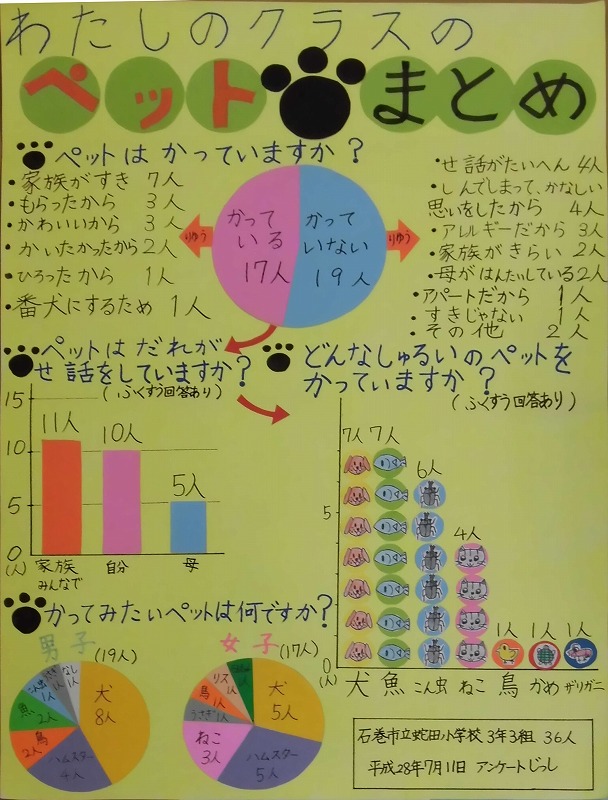 わたしのクラスの
ペットまとめ
ペットはかっていますか？
・家族がすき 7人
・もらったから 3人
・かわいいから 3人
・かいたかったから 2人
・ひろったから 1人
・番犬にするため 1人
りゆう
かって
いる
17人
かって
いない
19人
りゆう
・せ話がたいへん 4人
・しんでしまって、かなしい
思いをしたから 4人
・アレルギーだから 3人
・家族がきらい 2人
・母がはんたいしている 2人
・アパートだから 1人
・すきじゃない 1人
・その他 2人
ペットはだれが
せ話をしていますか？
(ふくすう回答あり)
15
10
5
0
(人)
11人
10人
5人
家族
みんなで
自分
母
どんなしゅるいのペットを
かっていますか？
(ふくすう回答あり)
5
0
(人)
7人 7人 6人 4人 1人 1人 1人
犬 魚 こん虫 ねこ 鳥 かめ ザリガニ
かってみたいペットは何ですか？
男子(19人)
犬
8人
ハムスター
4人
鳥
2人
魚
2人
こん虫
1人
なし
1人
女子(17人)
犬
5人
ハムスター
5人
ねこ
3人
うさぎ 1人
鳥
1人
リス
1人
石巻市立蛇田小学校 3年3組 36人
平成28年7月11日 アンケートじっし